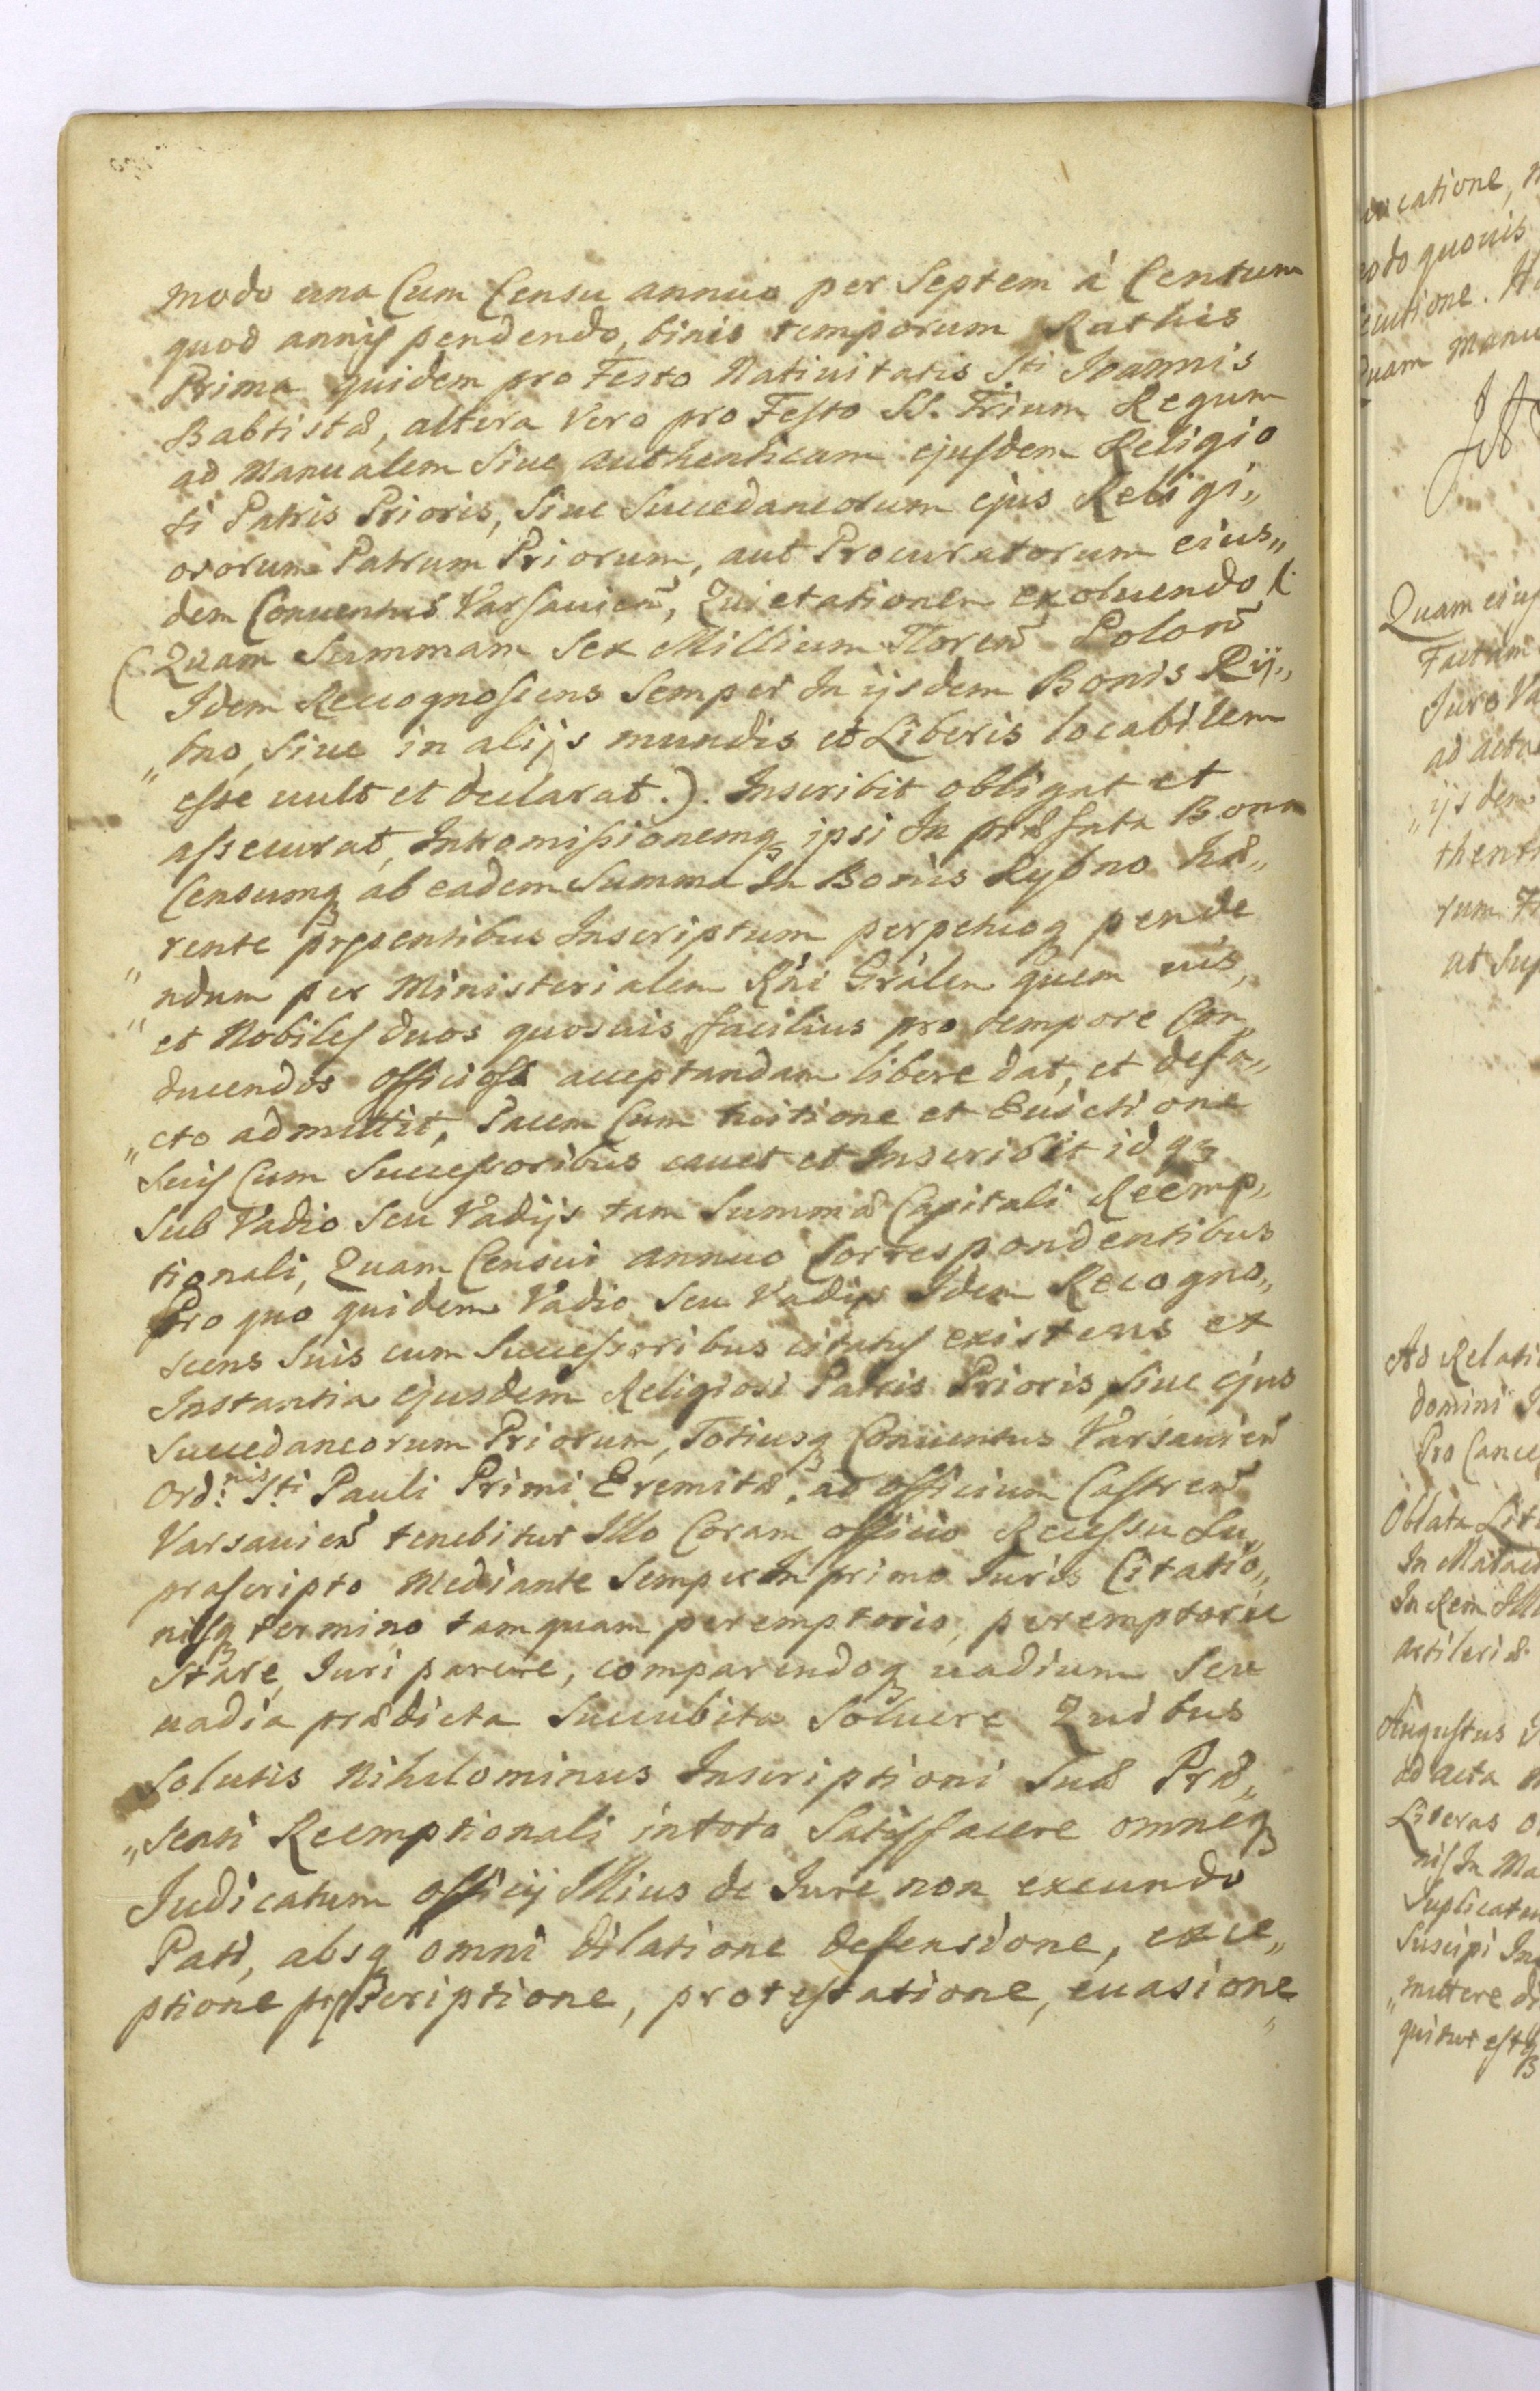 modo una Cum Censu annuo per Septem à Centum
quod annis pendendo, binis temporum Rathis
Prima quidem pro Festo Natiuitatis Sti Joannis
Babtistæ, altera Vero pro Festo SS. Trium Regum
ad Manualem Siue authenticam ejusdem Religio
si Patris Prioris, Siue Succedaneorum ejus Religi„
osorum Patrum Priorum, aut Procuratorum eius„
dem Conuentus Varsauien̄, Quietationem exoluendo
(Quam Summam Sex Millium Floren̄ Polon̄
Idem Recognoscens Semper In ijsdem Bonis Rÿ„
„bno, Siue in alijs mundis et Liberis locabilem
esse uult et declarat.). Inscribit obligat et
assecurat, Intromissionemq ipsi In præfata Bona
Censumq ab eadem Summa In Bonis Rybno Inhæ„
„rente præsentibus Inscriptum perpetuoq pende
„ndum per Ministerialem Rn̄i Gn̄alem quem uis,
et Nobiles duos quosuis facilius pro tempore Con„
ducendos officiose acceptandam libere dat, et defa„
„cto admittit, Pacem Cum tuitione et Euictione
Suis Cum Successoribus cauet et Inscribit idq
Sub Vadio Seu Vadijs tam Summæ Capitali Reemp„
tionali, Quam Censui annuo Correspondentibus
Pro quo quidem Vadio Seu Vadijs Idem Recogno„
scens Suis cum Successoribus citatus existens ex
Instantia ejusdem Religiosi Patris Prioris Siue ejus
Succedaneorum Priorum, Totiusq Conuentus Varsauien̄
Ord:nis S:ti Pauli Primi Eremitæ, ad officium Castren̄
Varsauien̄ tenebitur Illo Coram officio Recessu Su„
prascripto Mediante Semper In primo Juris Citatio„
nisq termino tamquam peremptorio, peremptorie
Stare, Juri parere, comparendoq uadium Seu
uadia prædicta Succubita Soluere Quibus
Solutis Nihilominus Inscriptioni Suæ Præ„
„senti Reemptionali intoto Satisfacere omneq
Judicatum officij Illius de Jure non exeundo
Pati, absq omni dilatione defensione, exce„
ptione præscriptione, protestatione, euasione„